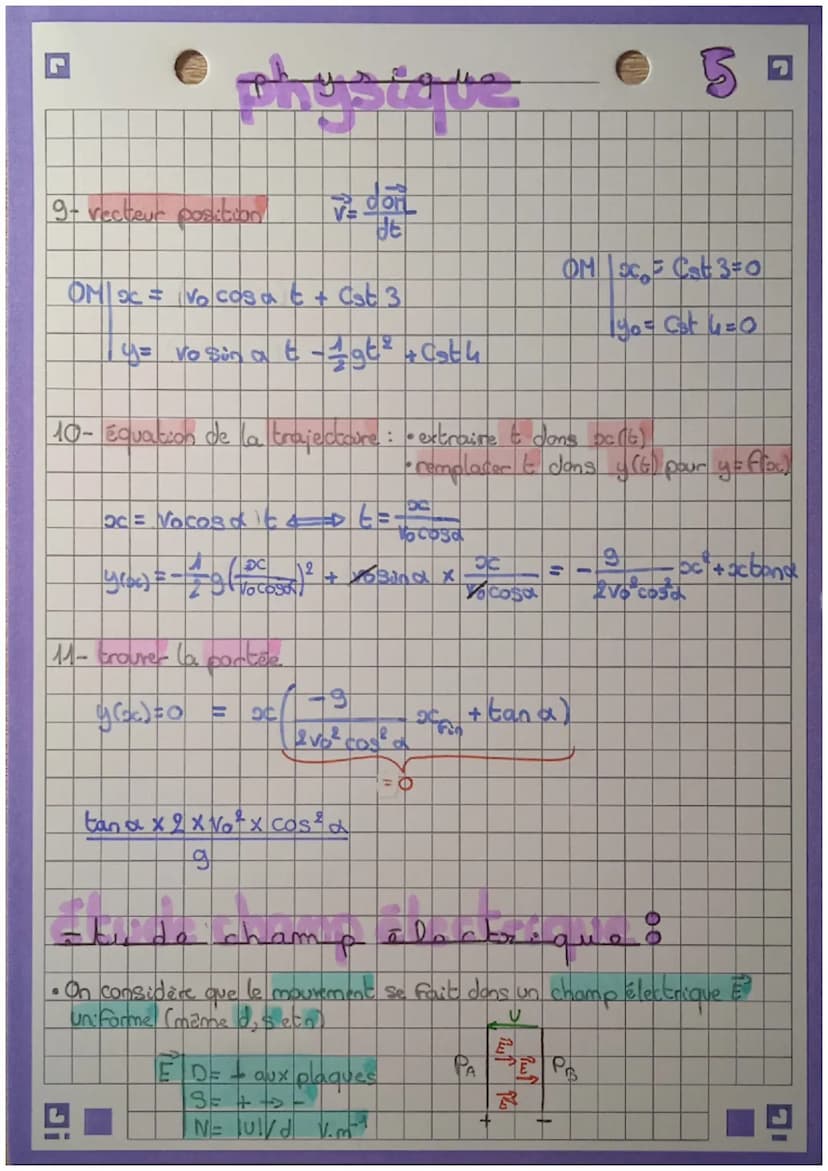 physique 5
9- vecteur position v⃗ = dOM⃗/dt
OM | x = v₀ cos α t + Cst 3
y = v₀ sin α t - 1/2 gt² + Cst 4
OM | x₀ = Cst 3 = 0
y₀ = Cst 4 = 0
10- équation de la trajectoire : • extraire t dans x(t)
• remplacer t dans y(t) pour y = f(x)
x = v₀ cos α t ⟺ t = x/(v₀ cos α)
y(x) = -1/2 g (x/(v₀ cos α))² + v₀ sin α × x/(v₀ cos α) = - g/(2v₀² cos² α) x² + x tan α
11- trouver la portée
y(x) = 0 = x( -g/(2v₀² cos² α) x_fin + tan α )
= 0
tan α × 2 × v₀² × cos² α / g
étude champ électrique :
• On considère que le mouvement se fait dans un champ électrique E⃗
uniforme (même d, s et n)
E⃗ | D = ⊥ aux plaques
S = + → -
N = |U|/d V.m⁻¹
U
P_A E⃗ E⃗ P_B
E⃗
+ -